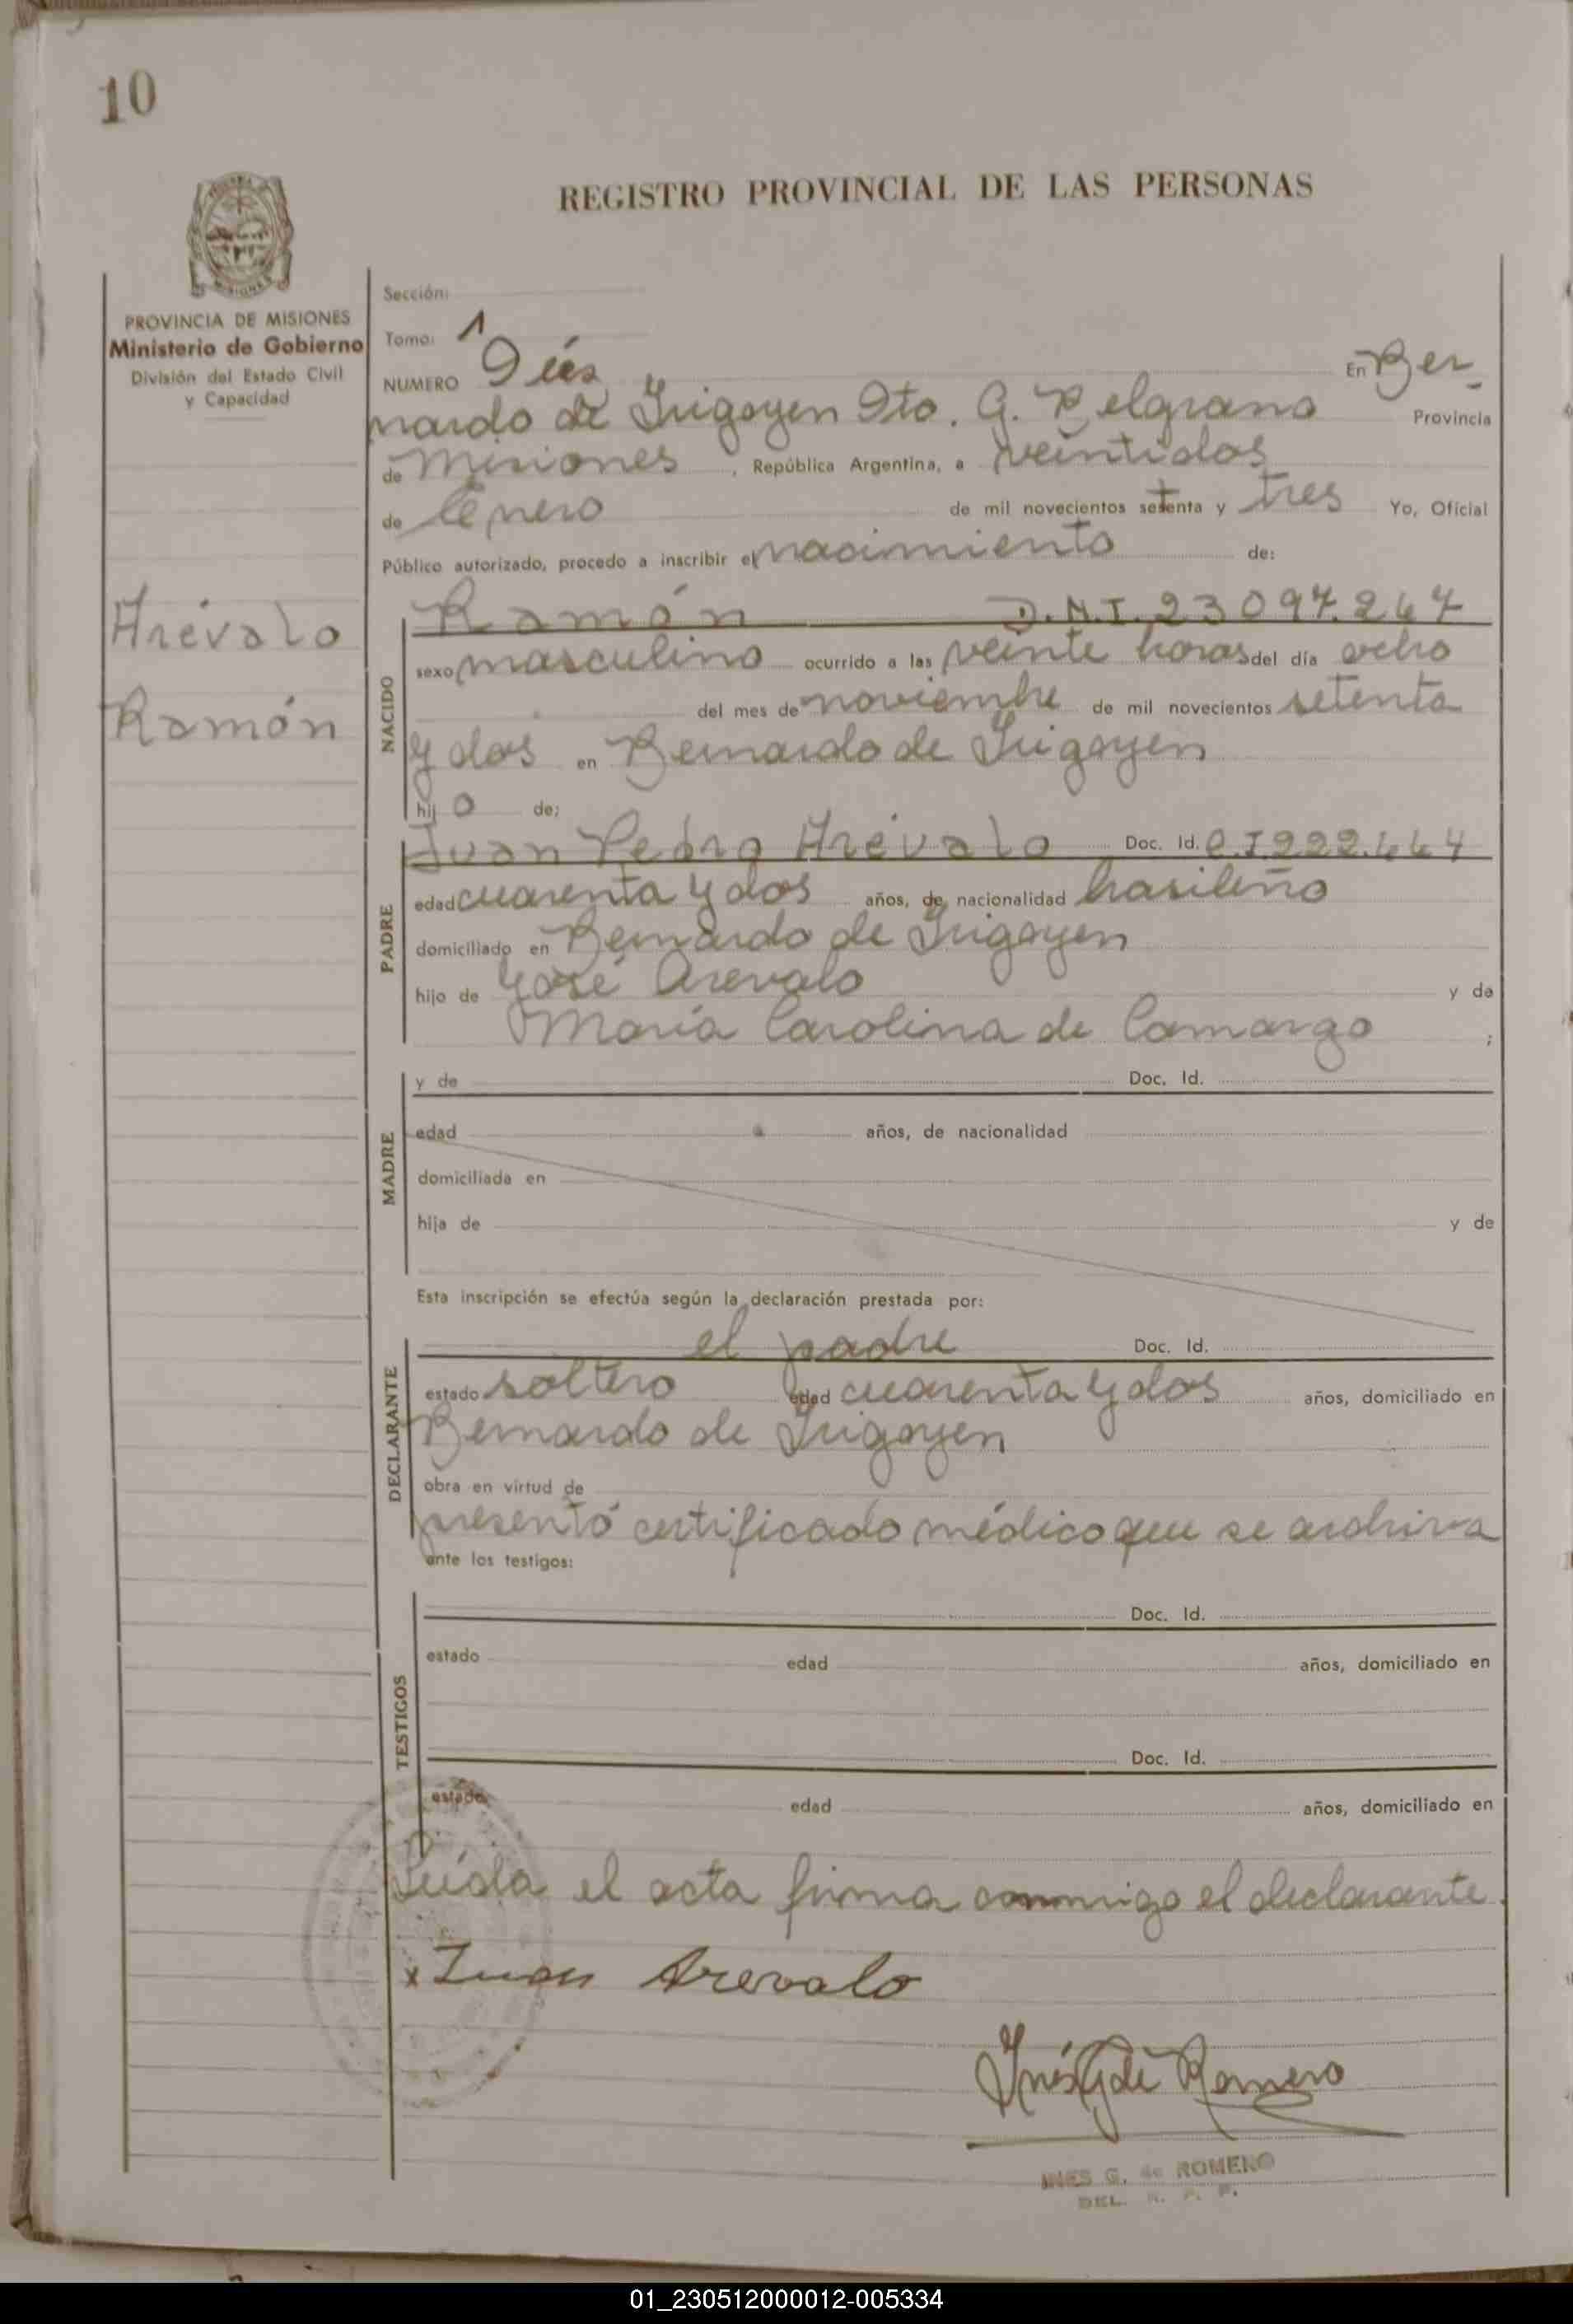 10
REGISTRO PROVINCIAL DE LAS PERSONAS
MISIONES
PROVINCIA DE MISIONES
Ministerio de Gobierno
División del Estado Civil
y Capacidad
Arévalo
Ramón
Sección:
Tomo: 1
NUMERO Diés En Ber-
nardo de Irigoyen Dto. G. Belgrano Provincia
de Misiones, República Argentina, a veintidos
de Enero de mil novecientos setenta y tres Yo, Oficial
Público autorizado, procedo a inscribir el nacimiento de:
NACIDO
Ramón D.N.I. 23097.267
sexo masculino ocurrido a las veinte horas del día ocho
del mes de noviembre de mil novecientos setenta
y dos en Bernardo de Irigoyen
hijo de;
PADRE
Juan Pedro Arévalo Doc. Id. C.I 222.664
edad cuarenta y dos años, de nacionalidad brasileño
domiciliado en Bernardo de Irigoyen
hijo de José Arevalo y de
María Carolina de Camargo ;
MADRE
y de Doc. Id.
edad años, de nacionalidad
domiciliada en
hija de y de
Esta inscripción se efectúa según la declaración prestada por:
DECLARANTE
el padre Doc. Id.
estado soltero edad cuarenta y dos años, domiciliado en
Bernardo de Irigoyen
obra en virtud de
presentó certificado médico que se archiva
ante los testigos:
TESTIGOS
Doc. Id.
estado edad años, domiciliado en
Doc. Id.
estado edad años, domiciliado en
Leída el acta firma conmigo el declarante.
x Juan Arevalo
Inés G de Romero
INES G. de ROMERO
DEL. R. P. P.
01_230512000012-005334